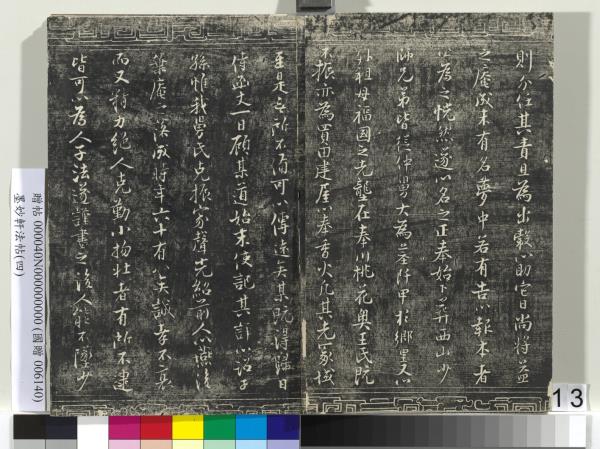 則分任其責且為出穀以助它日尚將益
之庵成未有名夢中若有告以報本者
以為之恍然遂以名之正奉始卜葬西山少
師兄弟皆從仲舅大為莖阡甲於鄉里又以
外祖母福國之先壟在奉川桃花奧王氏既
不振亦為買田建屋以奉香火凡其先家域
至是無所不用可以傳遠矣某既得歸日
侍亟丈一日顧某道始末使記其詳以詔子
孫惟我舅氏克振家聲光紹前人以燕後
葉庵之落成時年六十有八矣誠孝不衰
而又精力絕人克勤小物壯者有所不逮
皆可以為人子法遂謹書之後人能不墜少
贈帖 000040N000000000 (國贈 006140)
墨妙軒法帖(四)
13